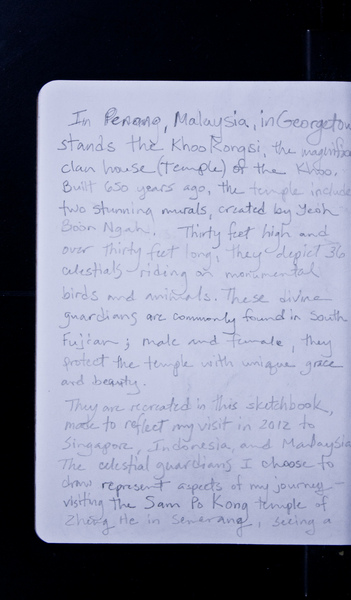 In Penang, Malaysia, in Georgetow
stands the Khoo Kongsi, the magnificen
clan house (Temple) of the Khoo.
Built 650 years ago, the temple include
two stunning murals, created by Yeoh
Boon Ngah. Thirty feet high and
over thirty feet long, they depict 36
celestials riding on monumental
birds and animals. These divine
guardians are commonly found in South
Fujian; male and female, they
protect the temple with unique grace
and beauty.
They are recreated in this sketchbook,
made to reflect my visit in 2012 to
Singapore, Indonesia, and Malaysia
The celestial guardians I choose to
draw represent aspects of my journey -
visiting the Sam Po Kong temple of
Zheng He in Semarang, seeing a